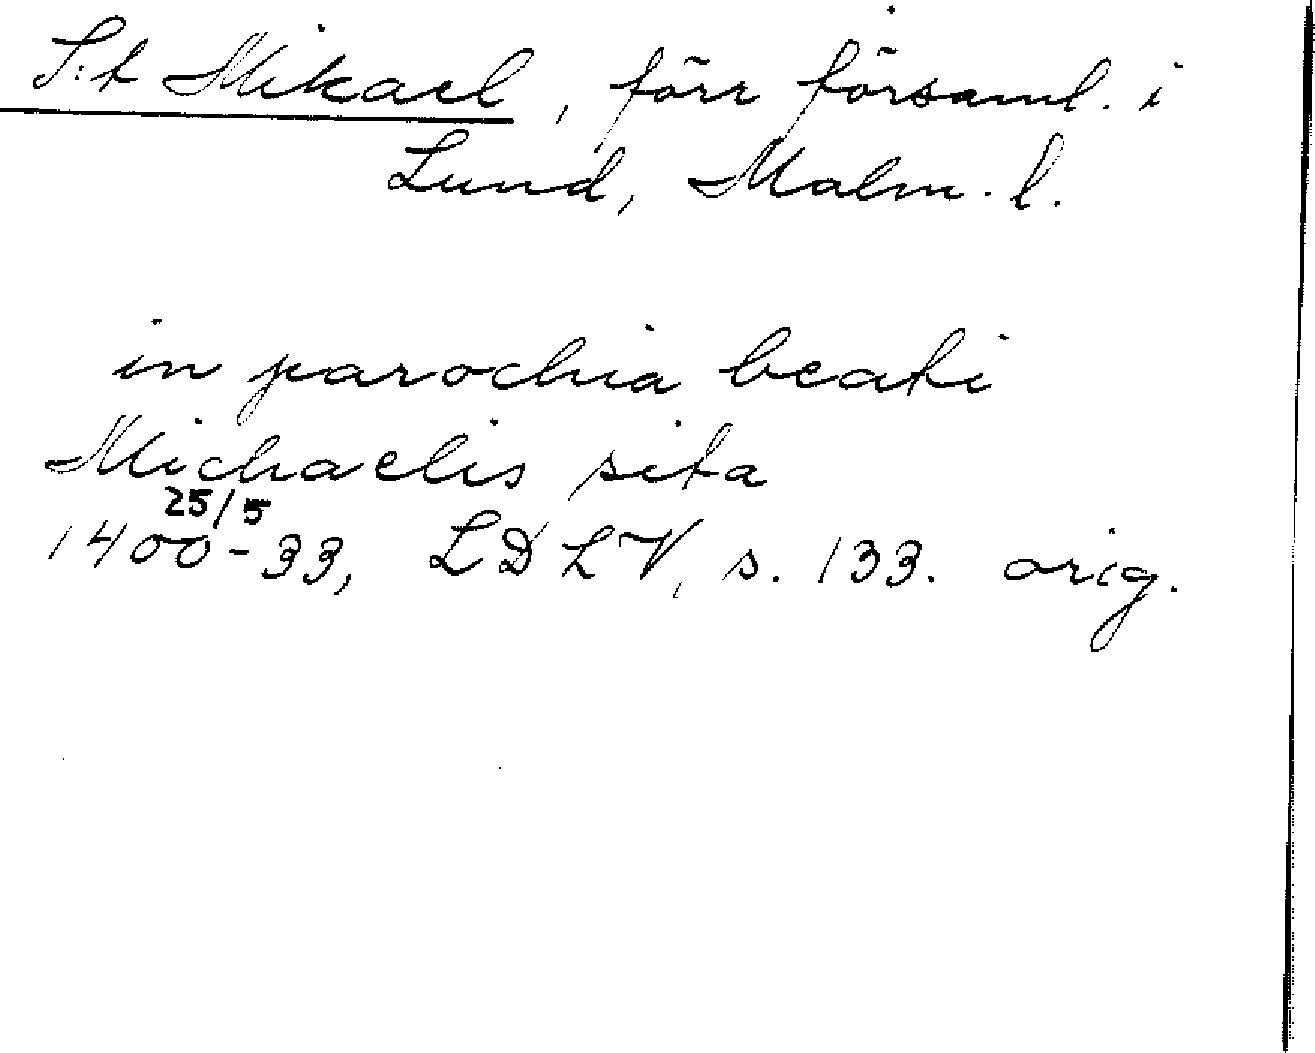 S:t Mikael, förr församl. i
Lund, Malm. l.
in parochia beati
Michaelis sita
25/5
1400-33, LDLV, s. 133. orig.